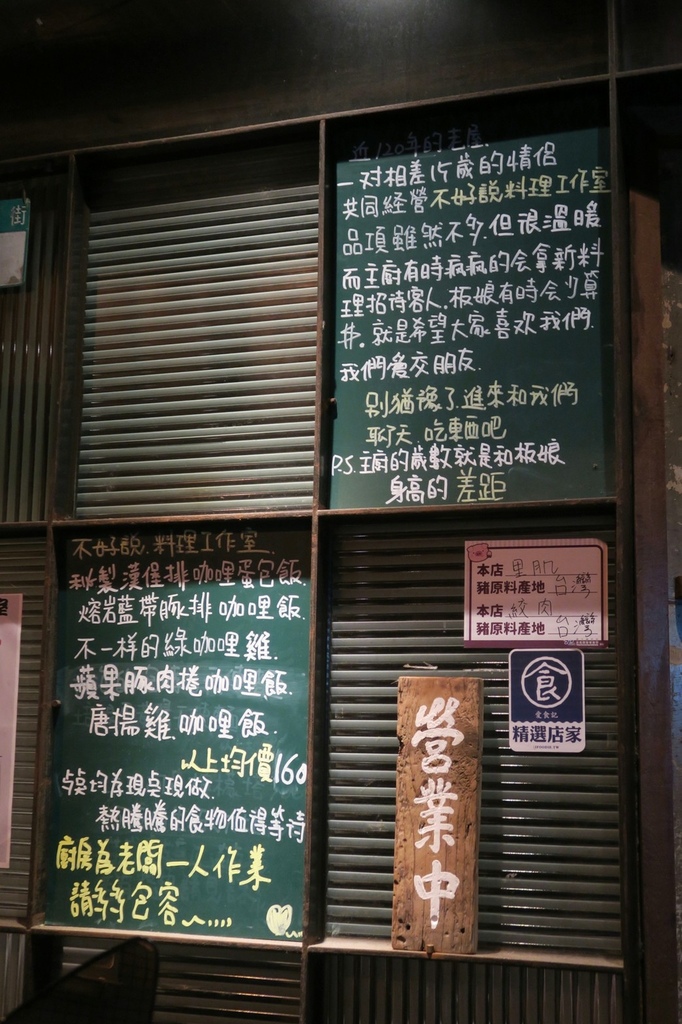 街
近120年的老屋
一对相差15歲的情侶
共同經營不好說料理工作室
品項雖然不多.但很溫暖
而主廚有時瘋瘋的会拿新料
理招待客人.板娘有時会少算
井。就是希望大家喜欢我們.
我們愛交朋友.
别猶豫了.進來和我們
聊天.吃東西吧
P.S.主廚的歲數就是和板娘
身高的差距
不好說.料理工作室.
秘製漢堡排咖哩蛋包飯.
熔岩藍帶豚排咖哩飯.
不一样的綠咖哩雞.
蘋果豚肉捲咖哩飯.
唐揚雞咖哩飯.
以上均價160
均為現点現做.
熱騰騰的食物值得等待
廚房為老闆一人作業
請多多包容~....
本店 里肌
豬原料產地 台灣
本店 絞肉
豬原料產地 台灣
食
愛食記
精選店家
營業中